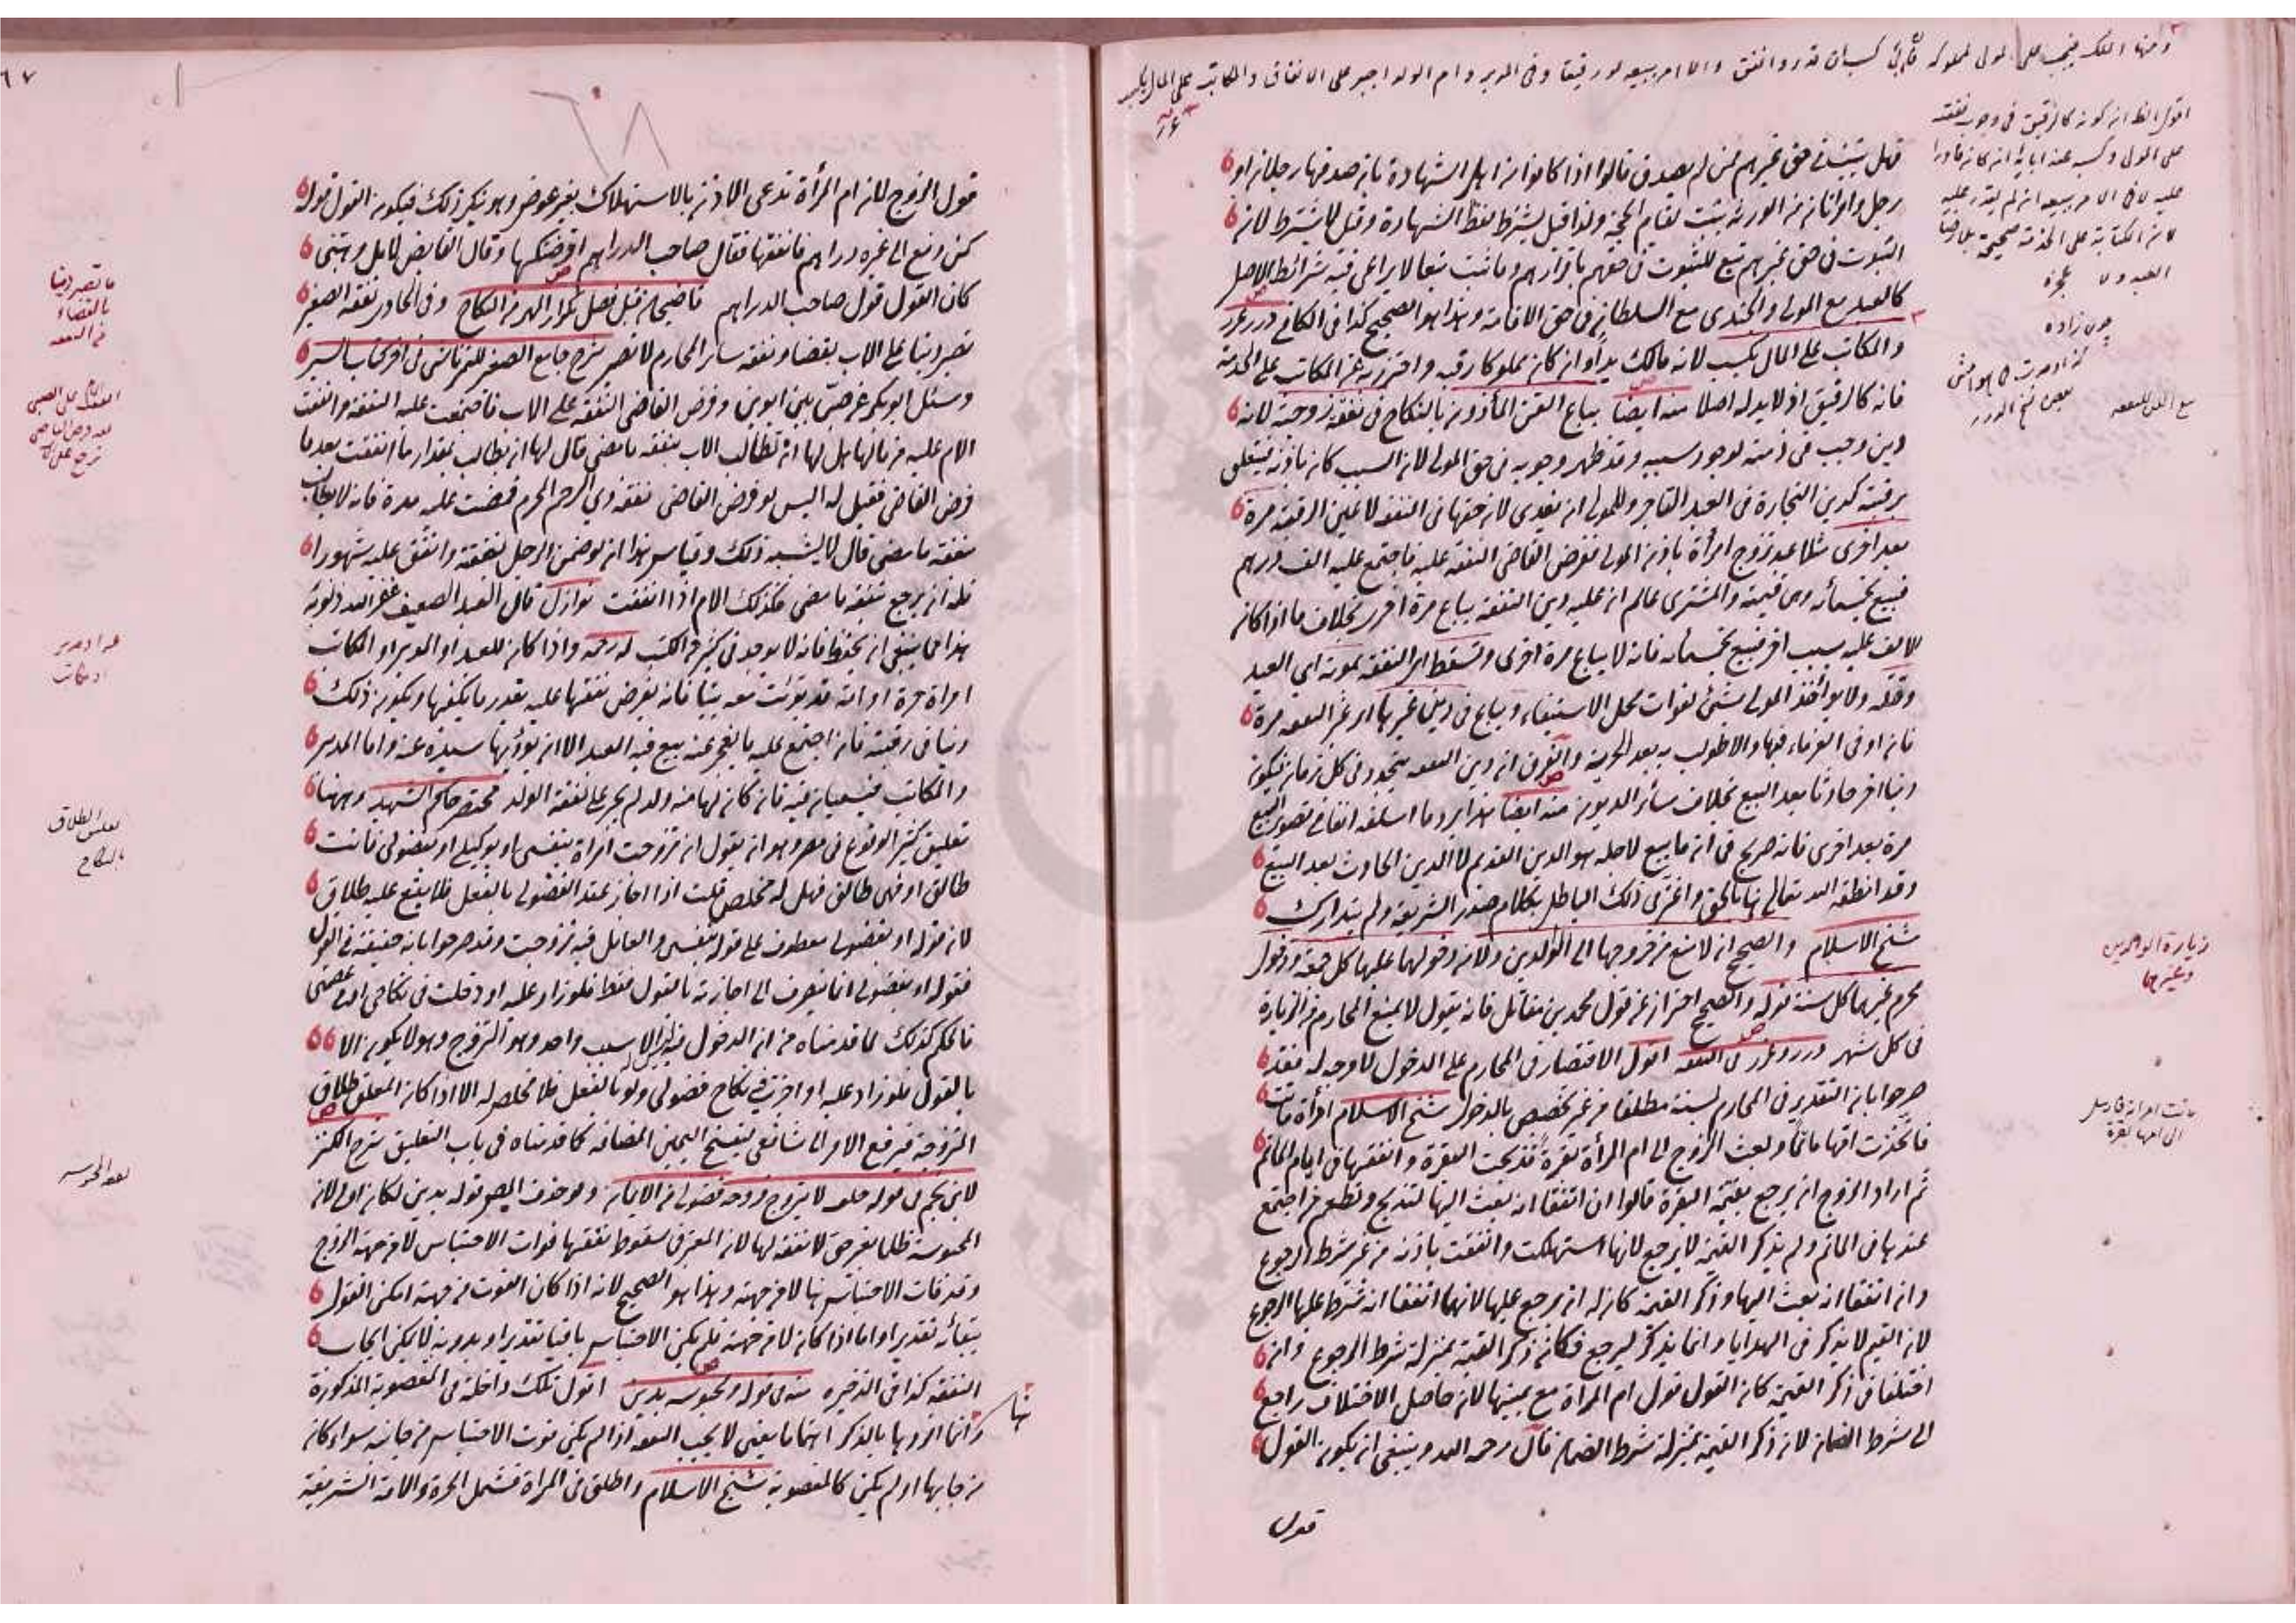 فهل يثبت في حق غيرهم ممن لم يصدق قالوا اذا كانوا من اهل الشهادة بان صدقها رجلان او
رجل وامراتان من الورثة يثبت لقيام الحجة ولذا قيل يشترط لفظ الشهادة وقيل لا يشترط لان
الثبوت في حق غيرهم تبع للثبوت في حقهم باقرارهم وما ثبت تبعا لا يراعى فيه شرائط الاصل
كالعبد مع المولى والجندي مع السلطان في حق الاقامة وهذا هو الصحيح كذا في الكافي درر غرر
والمكاتب على المال يكسب لانه مالك يدا وان كان مملوكا رقبة واحترز به عن المكاتب على الخدمة
فانه كالرقيق اذ لا يد له اصلا منه ايضا يباع القن المأذون بالنكاح في نفقة زوجته لانه
دين وجب في ذمته لوجود سببه وقد ظهر وجوبه في حق المولى لان السبب كان باذنه فيتعلق
برقبته كدين التجارة في العبد التاجر وللمولى ان يفدي لان حقها في النفقة لا في عين الرقبة مرة
بعد اخرى مثلا عبد تزوج امرأة باذن المولى ففرض القاضي النفقة عليه فاجتمع عليه الف درهم
فبيع بخمسمائة وهي قيمته والمشتري عالم ان عليه دين النفقة يباع مرة اخرى بخلاف ما اذا كان
الالف عليه بسبب اخر فبيع بخمسمائة فانه لا يباع مرة اخرى وتسقط اي النفقة بموته اي العبد
وقتله ولا يؤاخذ المولى بشئ لفوات محل الاستيفاء ويباع في دين غيرها اي غير النفقة مرة
فان اوفى الغرماء فبها والا طولب به بعد الحرية والفرق ان دين النفقة يتجدد في كل زمان فيكون
دينا اخر حادثا بعد البيع بخلاف سائر الديون منه ايضا هذا يرد ما اسلفه انفا في تصوير البيع
مرة بعد اخرى فانه صريح في ان ما بيع لاجله هو الدين القديم لا الدين الحادث بعد البيع
وقد انطقه الله تعالى هنا بالحق واغتر في ذلك الباطل بكلام صدر الشريعة ولم يتدارك
شيخ الاسلام والصحيح ان لا منع من خروجها الى الوالدين ولا من دخولها عليها كل جمعة ودخول
محرم غيرهما كل سنة قوله والصحيح احتراز عن قول محمد بن مقاتل فانه يقول لا يمنع المحارم من الزيارة
في كل شهر درر وغرر في النفقة اقول الاقتصار في المحارم على الدخول لا وجه له فقد
صرحوا بان التقدير في المحارم لسنة مطلقا من غير تخصيص بالدخول شيخ الاسلام امرأة ماتت
فاتخذت امها ماتما وبعث الزوج الى ام المرأة بقرة فذبحت البقرة وانفقتها في ايام الماتم
ثم اراد الزوج ان يرجع بقيمة البقرة قالوا ان اتفقا انه بعث اليها لتذبح وتطعم من اجتمع
عندها في الماتم ولم يذكر القيمة لا يرجع لانها استهلكت وانفقت باذنه من غير شرط الرجوع
وان اتفقا انه بعث اليها وذكر القيمة كان له ان يرجع عليها لانهما اتفقا انه شرط عليها الرجوع
لان القيم لا يذكر في الهدايا وانما يذكر ليرجع فكان ذكر القيمة بمنزلة شرط الرجوع وان
اختلفا في ذكر القيمة كان القول قول ام المرأة مع يمينها لان حاصل الاختلاف راجع
الى شرط الضمان لان ذكر القيمة بمنزلة شرط الضمان قال رحمه الله وينبغي ان يكون القول
قول
زيارة الوالدين
وغيرهما
٦٧
قول الزوج لان ام المرأة تدعي الاذن بالاستهلاك بغير عوض وهو ينكر ذلك فيكون القول قوله
كمن دفع الى غيره دراهم فانفقها فقال صاحب الدراهم اقرضتكها وقال القابض لا بل وهبتني
كان القول قول صاحب الدراهم قاضيخان قبل فصل تكرار المهر من النكاح وفي الحاوي نفقة الصغير
تصير دينا على الاب بقضاء ونفقة سائر المحارم لا تصير شرح جامع الصغير للتمرتاشي في اخر كتاب السير
وسئل ابو بكر عن صبي بين ابوين وفرض القاضي النفقة على الاب فاجتمعت عليه النفقة وانفقت
الام عليه من مالها هل لها ان تطالب الاب بنفقة ما مضى قال لها ان يطالب بمقدار ما انفقت بعد ما
فرض القاضي فقيل له اليس لو فرض القاضي نفقة ذي الرحم المحرم فمضت عليه مدة فانه لا يطالب
بنفقة ما مضى قال لا يشبه ذلك وقياس هذا ان لو ضمن الرجل بنفقة وانفق عليه شهورا
فله ان يرجع بنفقة ما مضى فكذلك الام اذا انفقت نوازل قال العبد الضعيف غفر الله ذنوبه
هذا مما ينبغي ان يحفظ فانه لا يوجد في كثير من الكتب له رحمه واذا كان للعبد او المدبر او المكاتب
امراة حرة او امة قد بوئت معه بيتا فانه يفرض نفقتها عليه بقدر ما يكفيها ويكون ذلك
دينا في رقبته فان اجتمع عليه ما يعجز عنه بيع فيه العبد الا ان يؤديها سيده عنه واما المدبر
والمكاتب فيسعيان فيه فان كان لها منه ولد لم يجبر على نفقة الولد مختصر حاكم الشهيد وههنا
تعليق كثير الوقوع في مصر وهو ان يقول ان تزوجت امراة بنفسي او بوكيلي او بفضولي فانت
طالق او فهي طالق فهل له مخلص قلت اذا اجاز عقد الفضولي بالفعل فلا يقع عليه طلاق
لان قوله او بفضولي معطوف على قوله بنفسي والعامل فيه تزوجت وقد صرحوا بانه حقيقة في القول
فقوله او بفضولي انما ينصرف الى اجازته بالقول فقط فلو زاد عليه او دخلت في نكاحي او في عصمتي
فالحكم كذلك لما قدمناه من ان الدخول فيه ليس له الا سبب واحد وهو التزوج وهو لا يكون الا
بالقول فلو زاد عليه او اجزت نكاح فضولي ولو بالفعل فلا مخلص له الا اذا كان المعلق طلاق
المتزوجة فيرفع الامر الى شافعي ليفسخ اليمين المضافة كما قدمناه في باب التعليق شرح الكنز
لابن نجيم في قوله حلف لا يتزوج فزوجه فضولي من الايمان ولو حذف المص قوله بدين لكان اولى لان
المحبوسة ظلما بغير حق لا نفقة لها لان المعتبر في سقوط نفقتها فوات الاحتباس لا من جهة الزوج
وقد فات الاحتباس هنا لا من جهته وهذا هو الصحيح لانه اذا كان الفوت من جهته امكن القول
ببقائه تقديرا واما اذا كان لا من جهته فلم يكن الاحتباس باقيا تقديرا وبدونه لا يمكن ايجاب
النفقة كذا في الذخيره منه في قوله ومحبوسه بدين اقول تلك داخلة في المغصوبة المذكورة
وانما افردها بالذكر اهتماما يعني لا يجب النفقة اذا لم يكن فوت الاحتباس من جانبه سواء كان
من جانبها او لم يكن كالمغصوبة شيخ الاسلام واطلق في المراة فشمل الحرة والامة الشريفة
ما تصير دينا
بالقضاء
من النفقة
تعليق الطلاق
بالنكاح